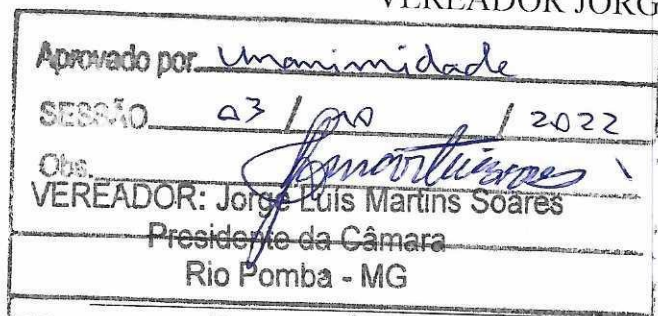 VEREADOR JORG
Aprovado por Unanimidade
SESSÃO 03 / 10 / 2022
Obs.
VEREADOR: Jorge Luís Martins Soares
Presidente da Câmara
Rio Pomba - MG